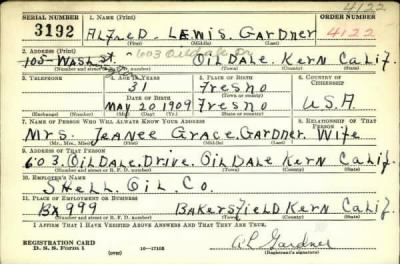 4122
SERIAL NUMBER 1. NAME (Print) ORDER NUMBER
3192 ALFRED. LEWIS. GARDNER 4122
(First) (Middle) (Last)
2. ADDRESS (Print) 603 Oildale Dr
105-WASH. ST. OILDALE. KERN CALIF.
(Town) (County) (State)
3. TELEPHONE 4. AGE IN YEARS 5. PLACE OF BIRTH 6. COUNTRY OF CITIZENSHIP
31 FRESNO
DATE OF BIRTH (Town or county)
MAY 20 1909 FRESNO U.S.A.
(Exchange) (Number) (Mo.) (Day) (Yr.) (State or country)
7. NAME OF PERSON WHO WILL ALWAYS KNOW YOUR ADDRESS 8. RELATIONSHIP OF THAT PERSON
MRS. JEANEE GRACE. GARDNER. WIFE
(Mr., Mrs., Miss) (First) (Middle) (Last)
9. ADDRESS OF THAT PERSON
603. OILDALE. DRIVE. OILDALE KERN CALIF.
(Number and street or R. F. D. number) (Town) (County) (State)
10. EMPLOYER'S NAME
SHELL. OIL. CO.
11. PLACE OF EMPLOYMENT OR BUSINESS
BX 999 BAKERSFIELD KERN CALIF.
(Number and street or R. F. D. number) (Town) (County) (State)
I AFFIRM THAT I HAVE VERIFIED ABOVE ANSWERS AND THAT THEY ARE TRUE.
REGISTRATION CARD
D. S. S. Form 1 (over) 16-17105 A L Gardner
(Registrant's signature)